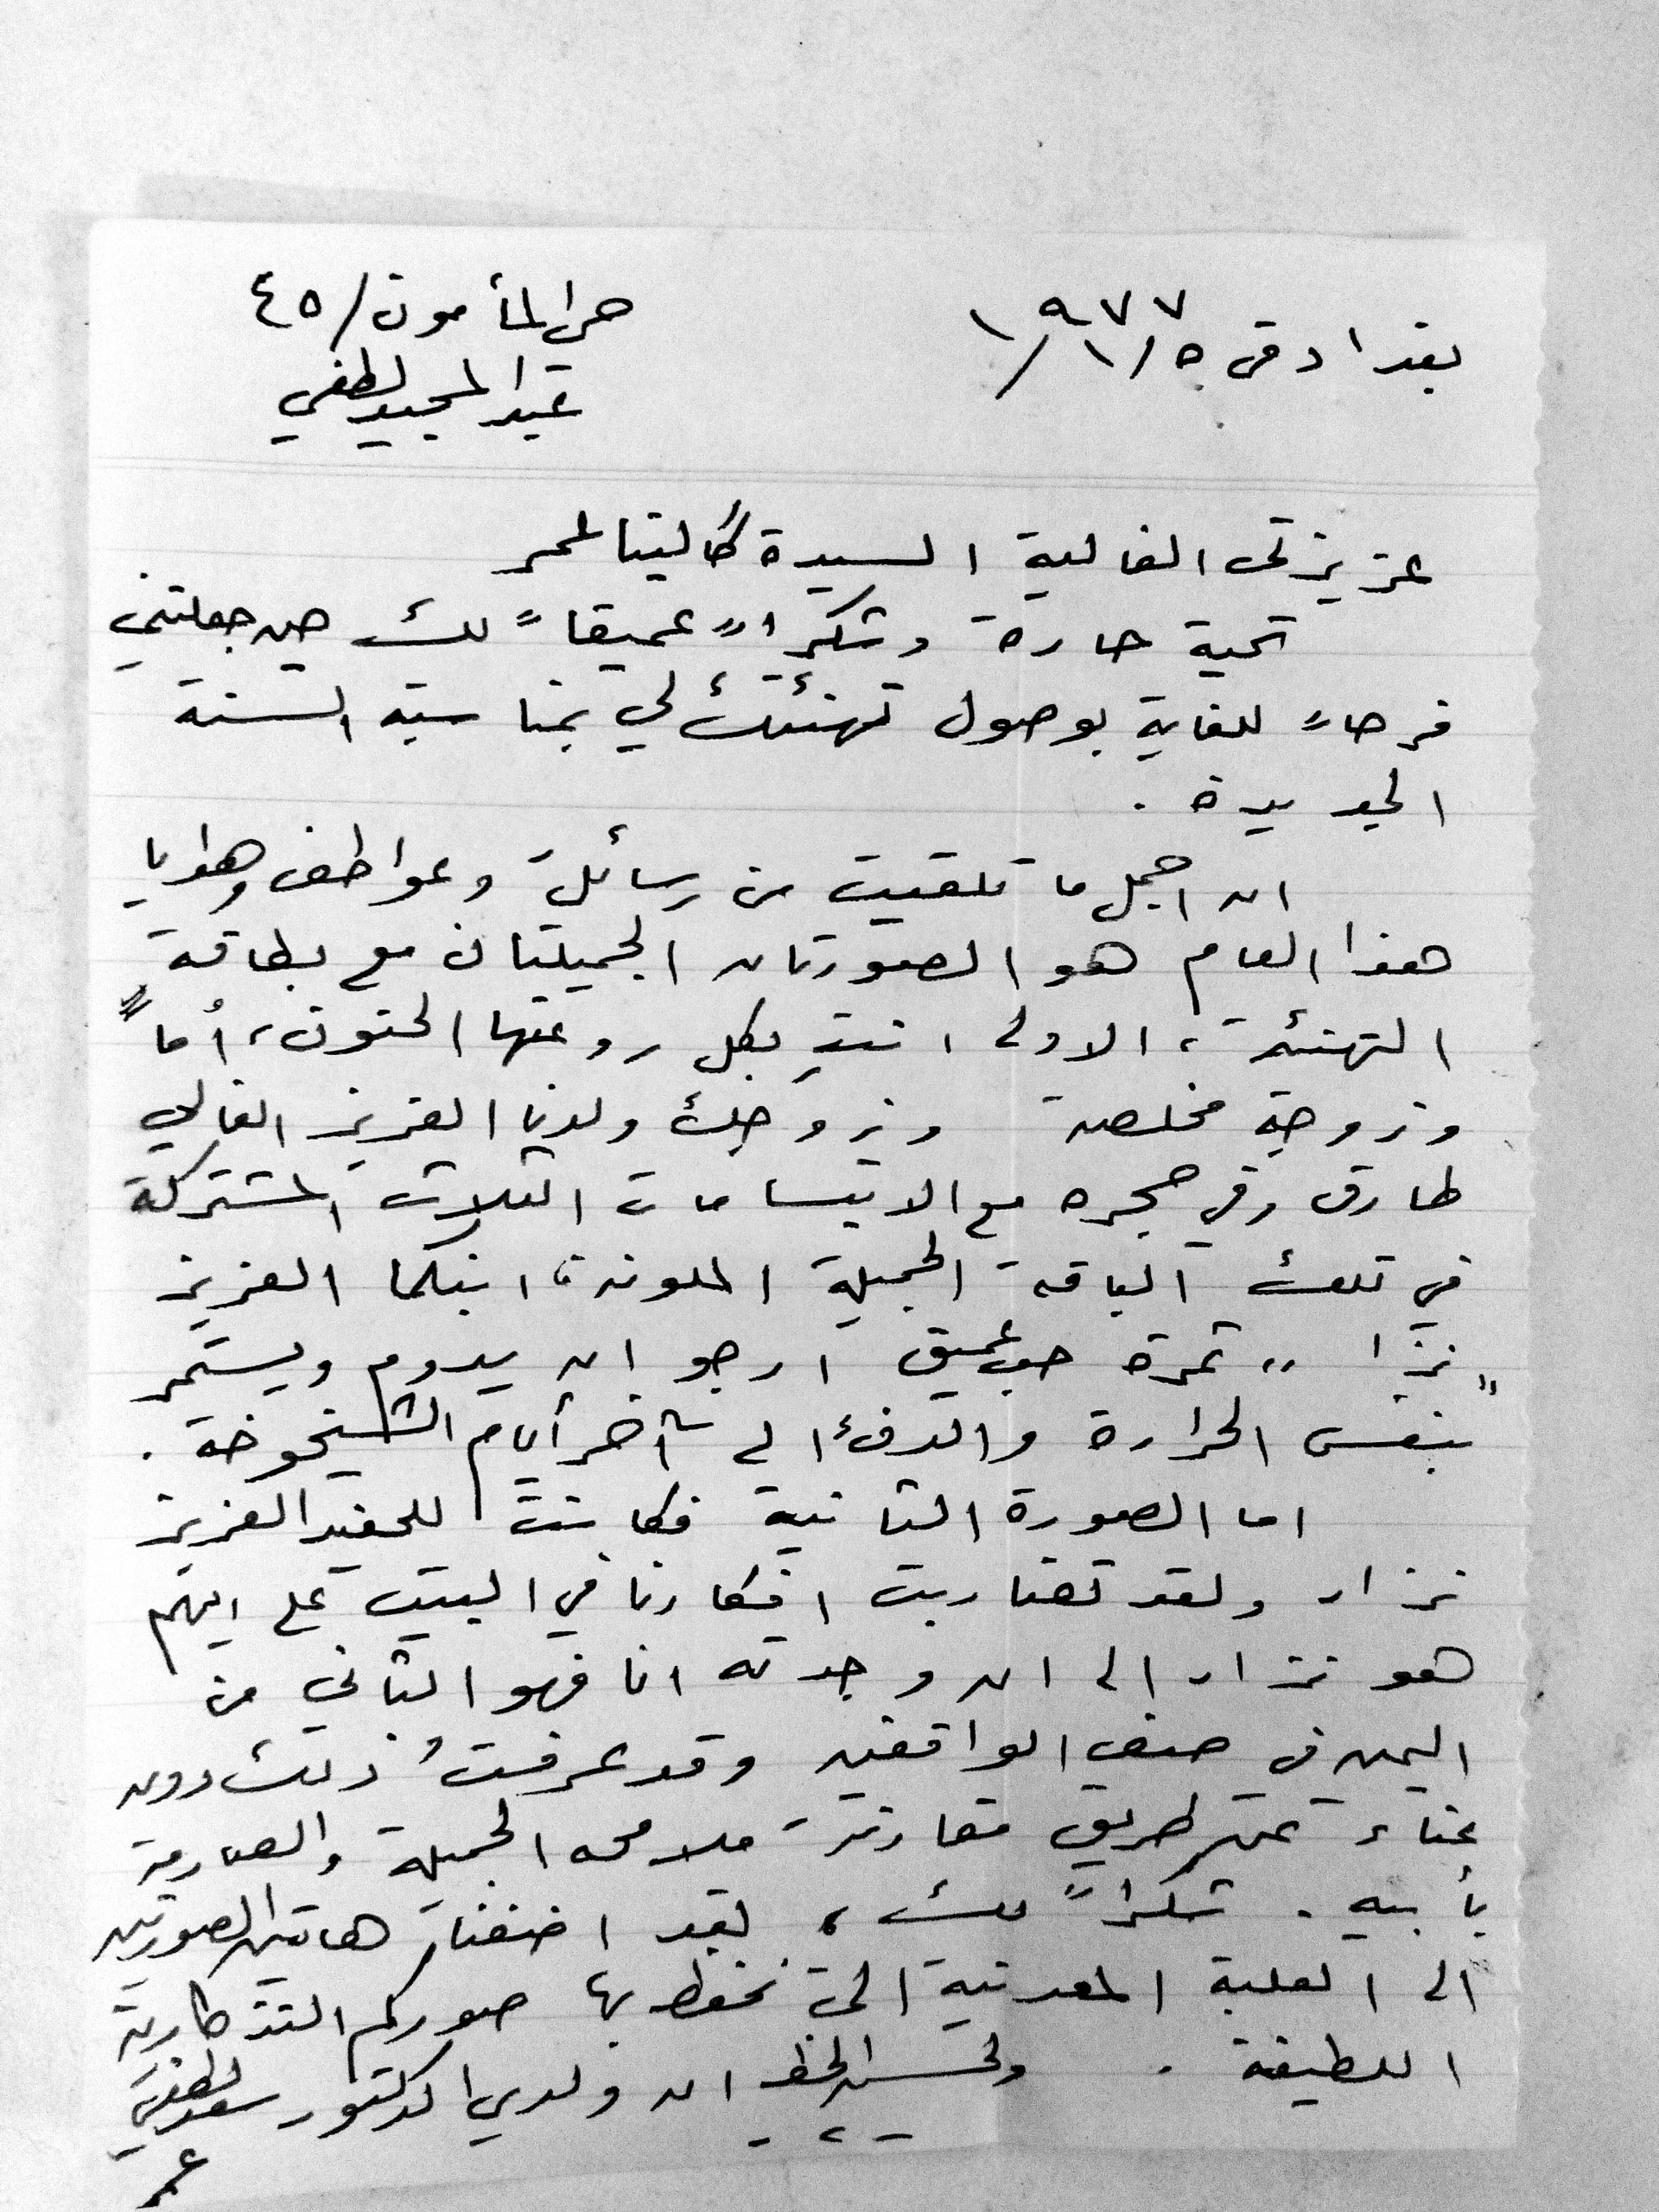 بغداد في ٥/١/١٩٧٧
حي المأمون/٤٥
عبد المجيد لطفي
عزيزتي الغالية السيدة گالينا لعمر
تحية حارة وشكراً عميقاً لك حين جعلتني
فرحاً للغاية بوصول تهنئتك لي بمناسبة السنة
الجديدة .
ان اجمل ما تلقيت من رسائل وعواطف وهدايا
هذا العام هو الصورتان الجميلتان مع بطاقة
التهنئة ، الاولى انتِ بكل روعتها الحنون ، أماً
وزوجة مخلصة وزوجك ولدنا العزيز الغالي
طارق وفي حجره مع الابتسامات الثلاث المشتركة
في تلك الباقة الجميلة الملونة ، ابنكما العزيز
" نزا " ثمرة حب عميق ارجو ان يدوم ويستمر
بنفس الحرارة والدفء الى آخر أيام الشيخوخة .
اما الصورة الثانية فكانت للحفيد العزيز
نزار ولقد تضاربت افكارنا في البيت على ايهم
هو نزار الى ان وجدته انا فهو الثاني من
اليمين في صف الواقفين وقد عرفتُ ذلك دون
عناء عن طريق مقارنة ملامحه الجميلة والصارمة
بأبيه . شكراً لك ، لقد اضفنا هاتين الصورتين
الى العلبة المعدنية التي نحفظ بها صوركم التذكارية
اللطيفة . ولحسن الحظ ان ولدي الدكتور سعد لطفي